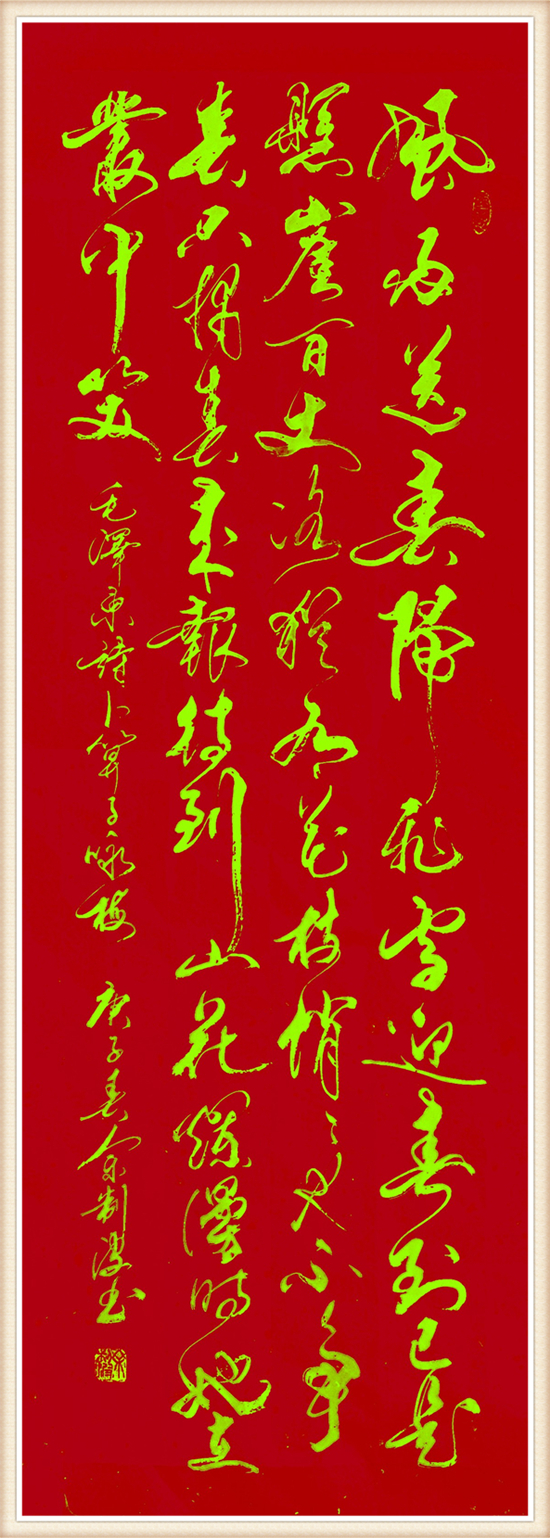 風雨送春歸飛雪迎春到已是
懸崖百丈冰猶有花枝俏〻也不爭
春只把春來報待到山花爛漫時她在
叢中笑 毛澤東詩卜算子咏梅 庚子春